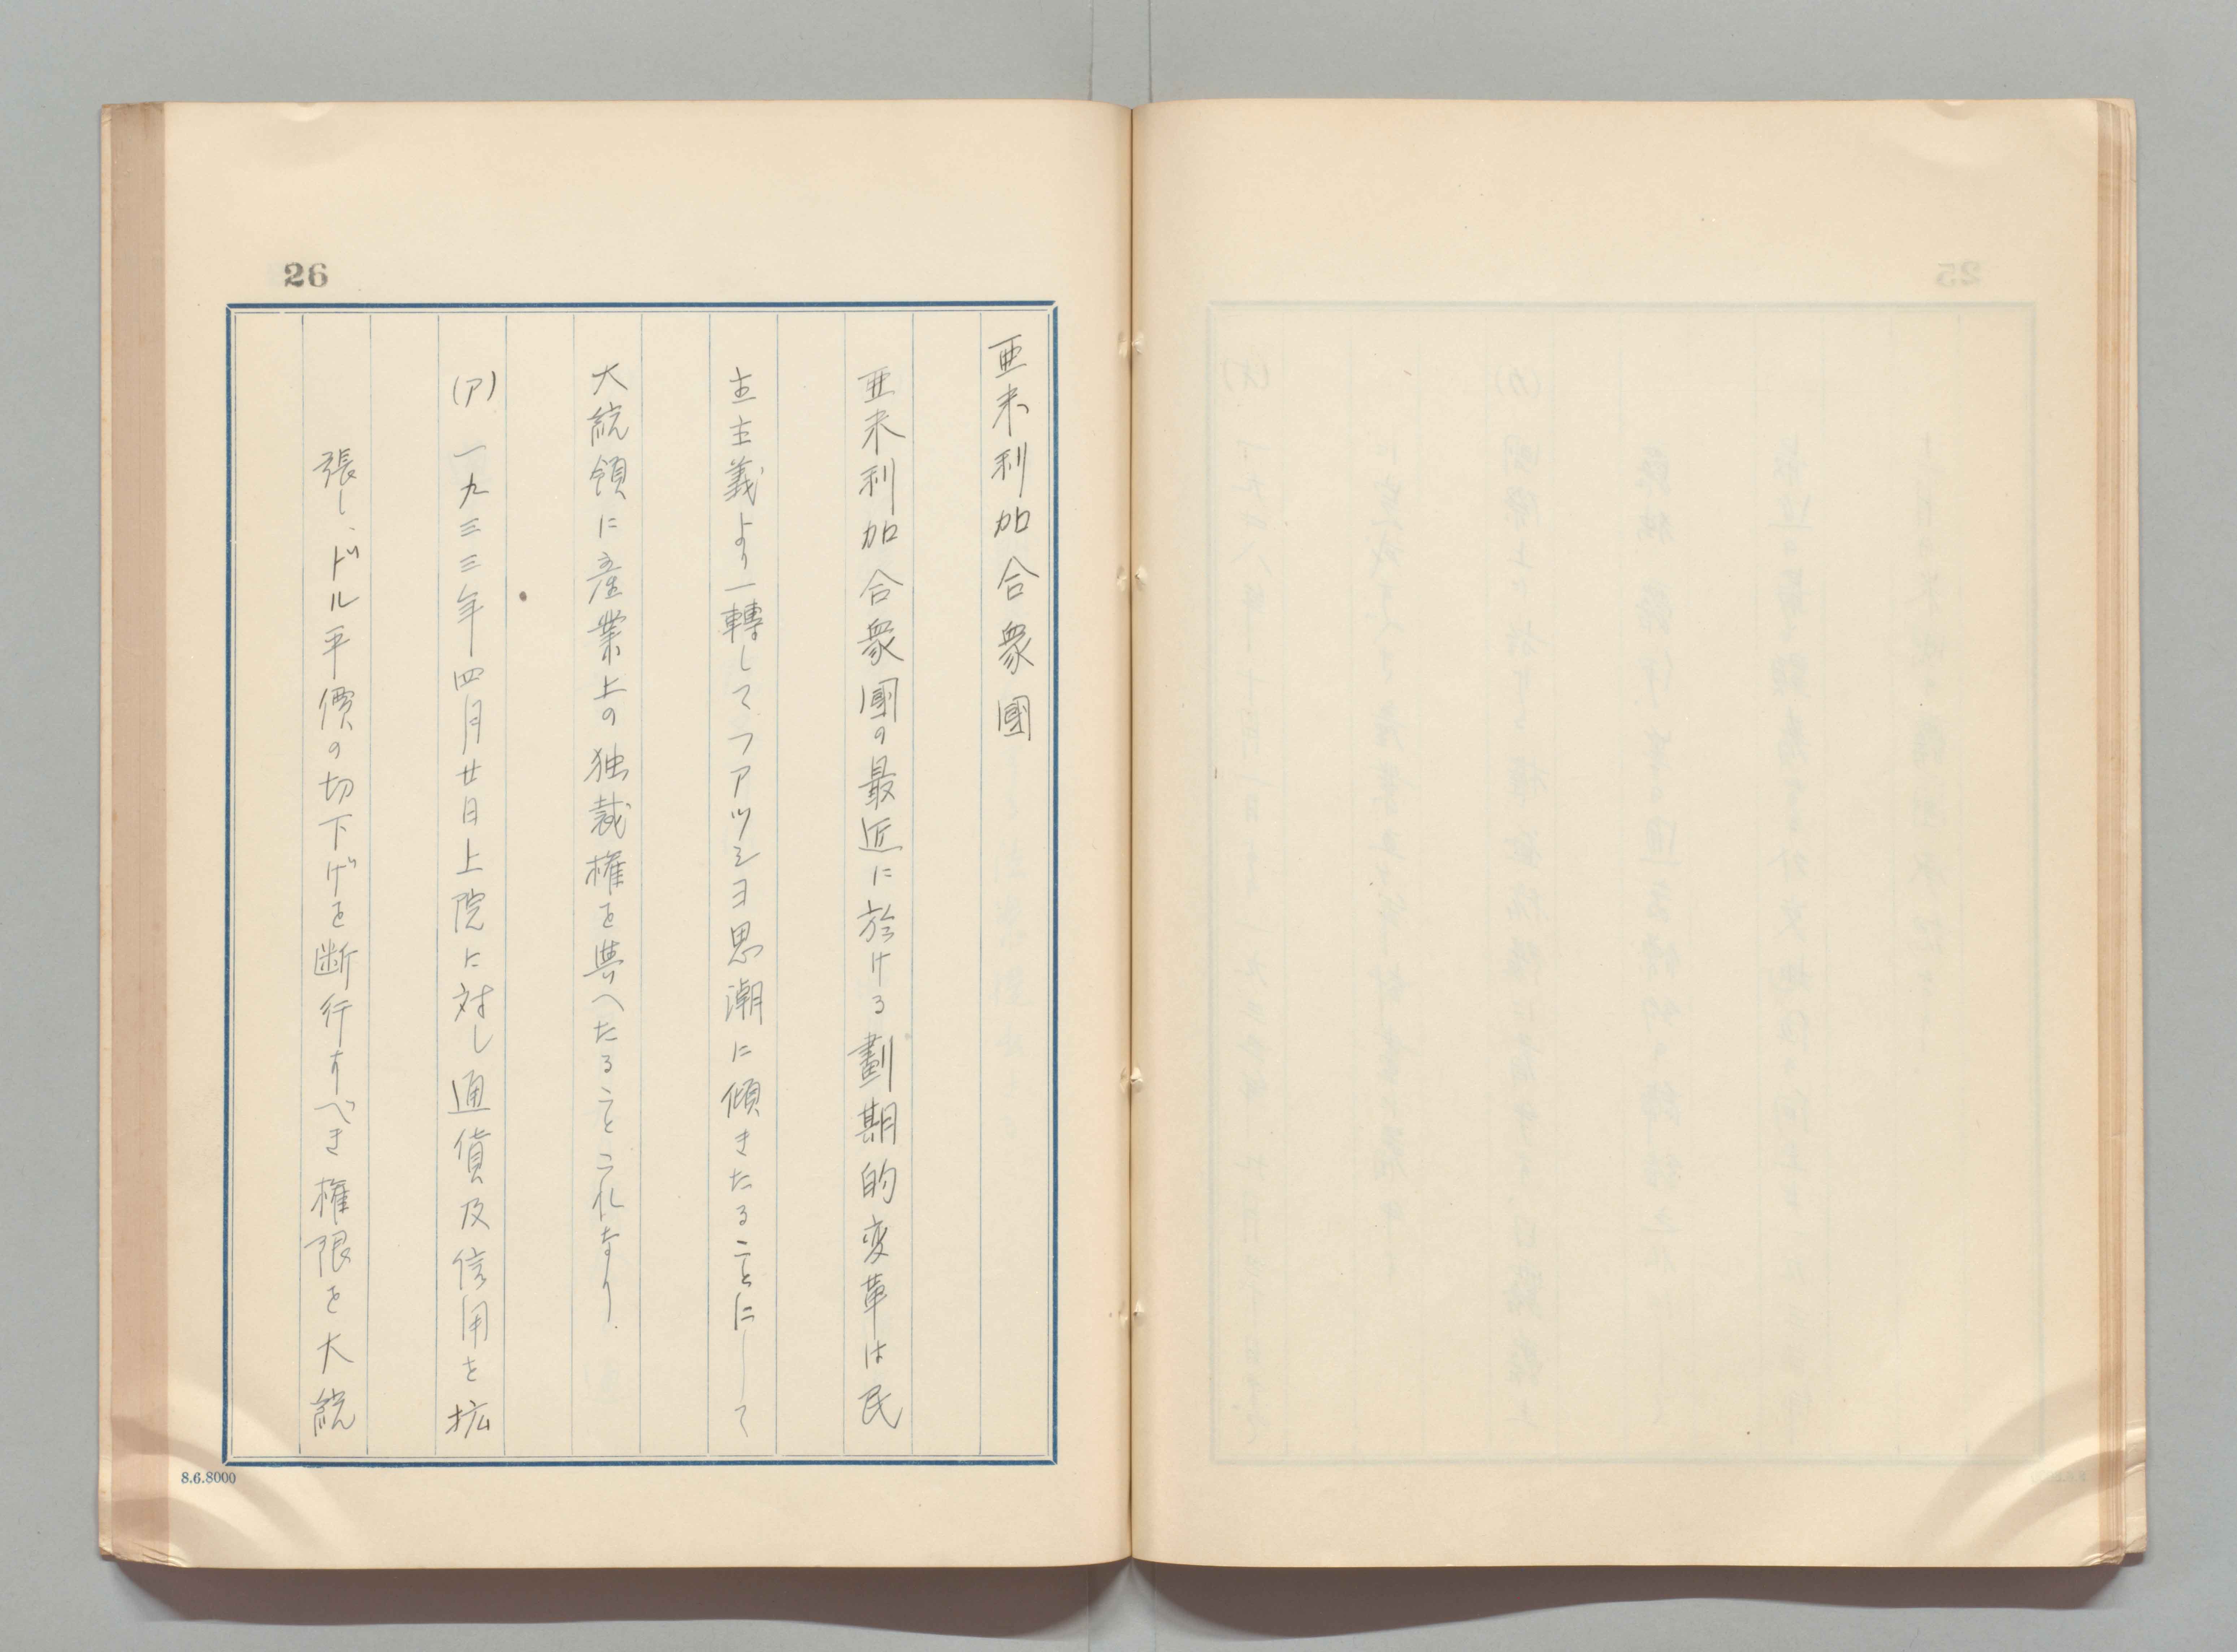 26
亜米利加合衆國
亜米利加合衆國の最近に於ける劃期的変革は民
主主義より一轉してフアツシヨ思潮に傾きたることにして
大統領に産業上の独裁権を與へたることこれなり.
(ア) 一九三三年四月廿日上院に対し通貨及信用を拡
張し、ドル平價の切下げを断行すべき権限を大統
8.6.8000